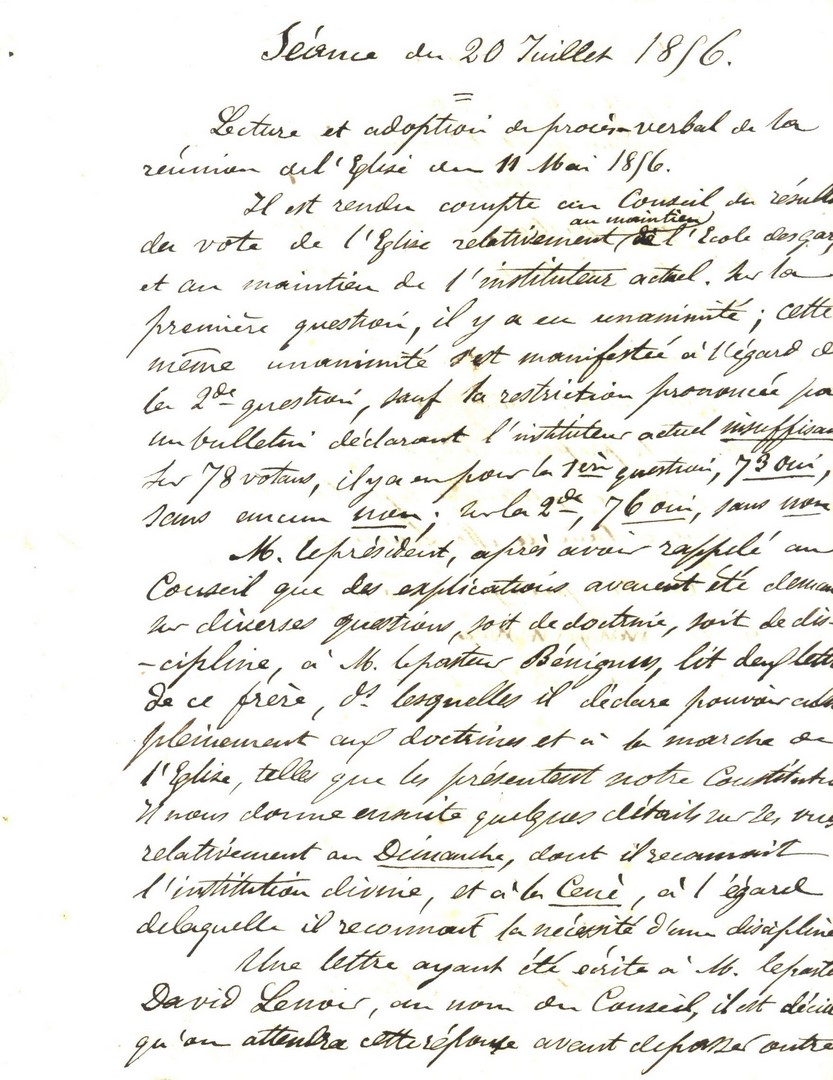 Séance du 20 Juillet 1856.
Lecture et adoption du procès-verbal de la
réunion de l'Eglise du 11 Mai 1856.
Il est rendu compte au Conseil du résult
au maintien
du vote de l'Eglise relativement de l'Ecole des gar
et au maintien de l'instituteur actuel. Sur la
première question, il y a eu unanimité ; cette
même unanimité s'est manifestée à l'égard de
la 2de question, sauf la restriction prononcée pa
un bulletin déclarant l'instituteur actuel insuffisan
Sur 78 votans, il y a eu pour la 1ère question, 73 oui,
sans aucun non ; sur la 2de, 76 oui, sans non
M. le président, après avoir rappelé au
Conseil que des explications avaient été deman
sur diverses questions, soit de doctrine, soit de dis-
-cipline, à M. le pasteur Bénignus, lit deux lettr
de ce frère, ds lesquelles il déclare pouvoir adh
pleinement aux doctrines et à la marche de
l'Eglise, telles que les présentent notre Constitutio
Il nous donne ensuite quelques détails sur ses vues
relativement au Dimanche, dont il reconnait
l'institution divine, et à la Cène, à l'égard
de laquelle il reconnait la nécessité d'une discipline
Une lettre ayant été écrite à M. le paste
David Lenoir, au nom du Conseil, il est décid
qu'on attendra cette réponse avant de passer outre